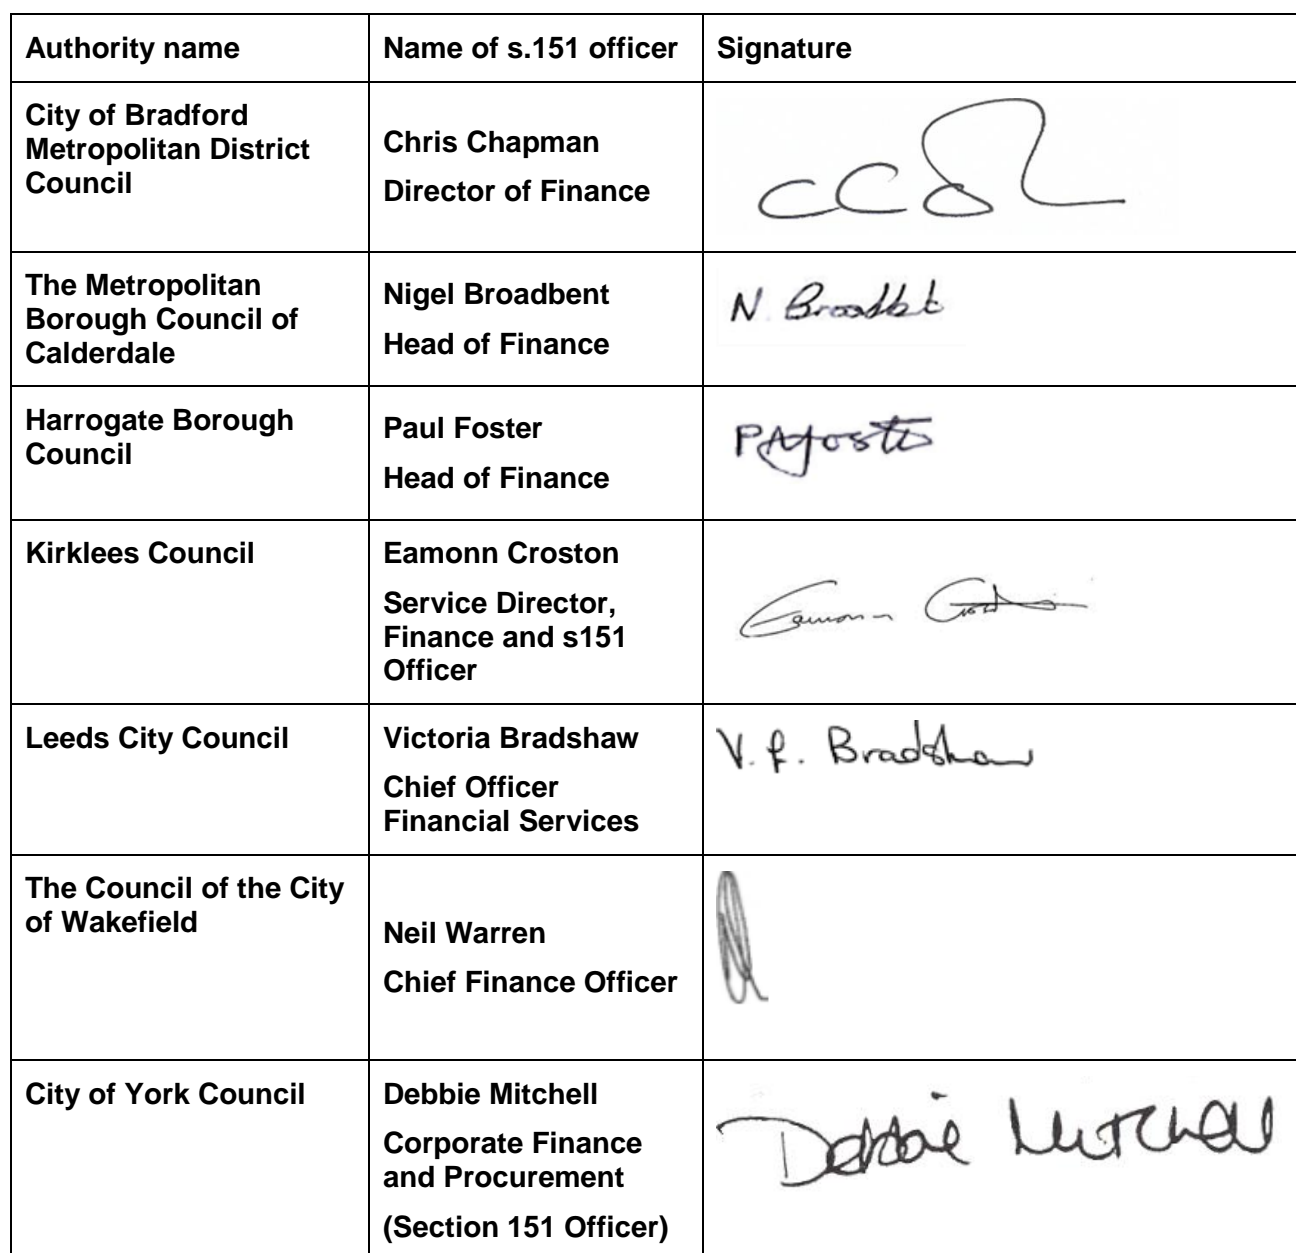 Authority name
Name of s.151 officer
Signature
City of Bradford
Metropolitan District
Council
Chris Chapman
Director of Finance
The Metropolitan
Borough Council of
Calderdale
Nigel Broadbent
Head of Finance
N. Broadbt
Harrogate Borough
Council
Paul Foster
Head of Finance
PAFoster
Kirklees Council
Eamonn Croston
Service Director,
Finance and s151
Officer
Eamonn
Leeds City Council
Victoria Bradshaw
Chief Officer
Financial Services
Bradshaw
The Council of the City
of Wakefield
Neil Warren
Chief Finance Officer
City of York Council
Debbie Mitchell
Corporate Finance
and Procurement
(Section 151 Officer)
Debbie Mitchell